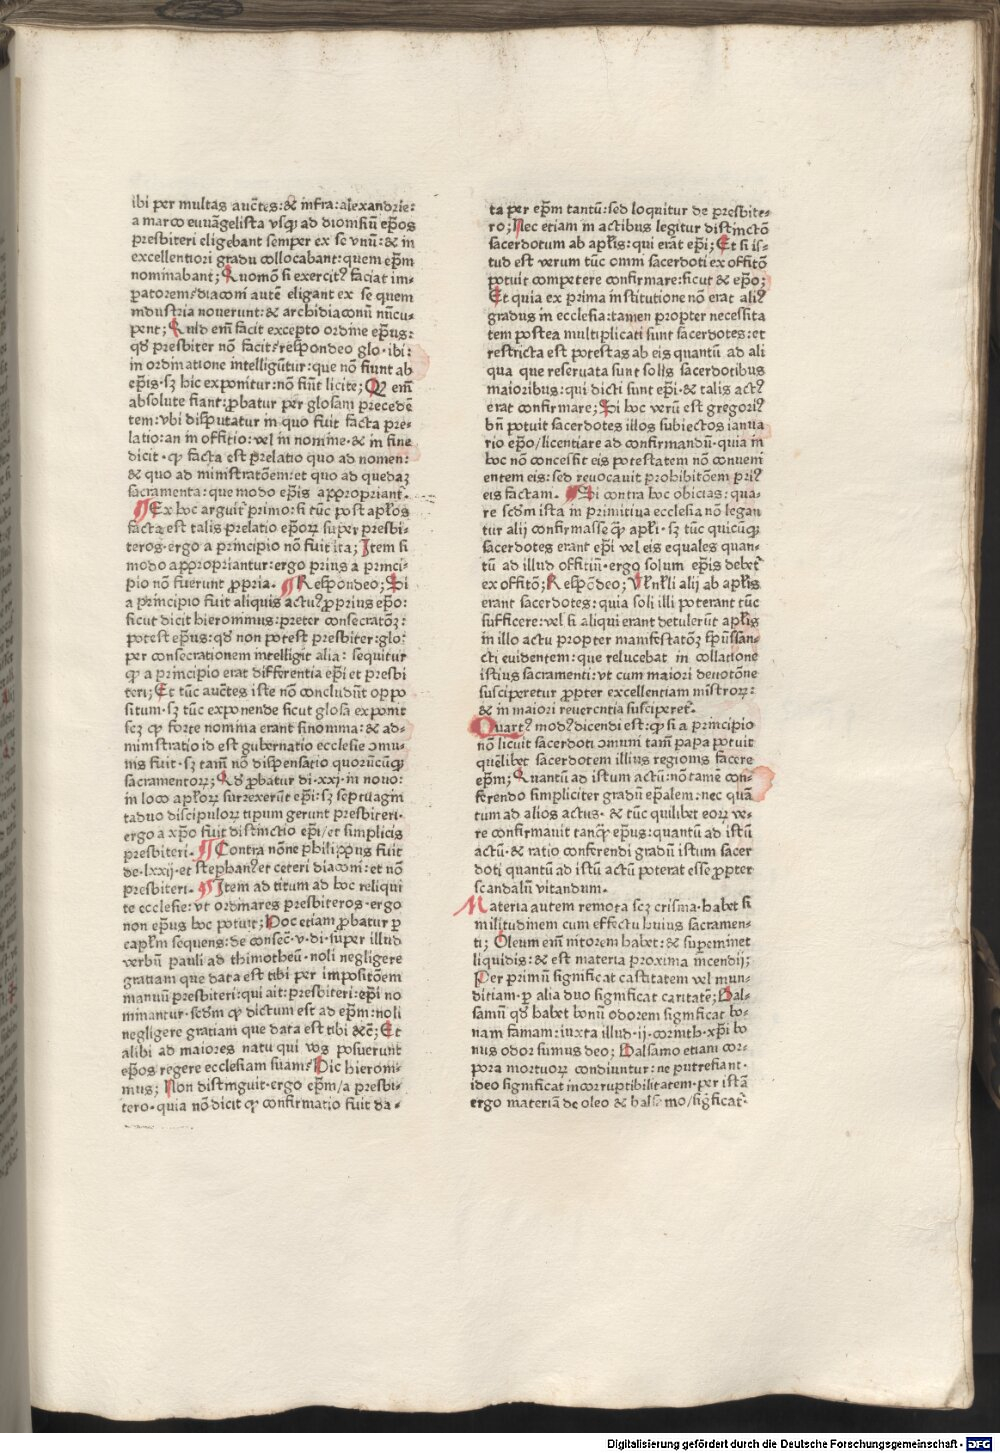 ibi per multas auc̄tes: & infra: alexandrie:
a marco euuāgelista vsq; ad dionisiū ep̄os
presbiteri eligebant semper ex se vnū: & in
excellentiori gradu collocabant: quem ep̄m
nominabant; Quomō si exercitꝰ faciat im-
patorem: diaconi autē eligant ex se quem
industria nouerunt: & archidiaconū nūcu-
pent; Quid em̄ facit excepto ordine ep̄us:
qd̄ presbiter nō facit: respondeo glo. ibi:
in ordinatione intelligūtur: que nō fiunt ab
ep̄is. sꝫ hic exponitur: nō fiūt licite; Qꝫ em̄
absolute fiant: ꝓbatur per glosam precedē
tem: vbi disputatur in quo fuit facta pre-
latio: an in offitio: vel in nomine. & in fine
dicit. ꝙ facta est p̄relatio quo ad nomen:
& quo ad ministratōem: et quo ad quedaꝫ
sacramenta: que modo ep̄is appropriant̄.
¶ Ex hoc arguit̄ primo: si tūc post apl̄os
facta est talis prelatio ep̄oꝝ super presbi-
teros. ergo a principio nō fuit ita; Item si
modo appropriantur: ergo prius a princi-
pio nō fuerunt ꝓpria. ¶ Respondeo; Si
a principio fuit aliquis actuꝰ ꝓprius ep̄o:
sicut dicit hieronimus: preter consecratōꝫ:
potest ep̄us: qd̄ non potest presbiter: glo.
per consecrationem intelligit alia: sequitur
ꝙ a principio erat differentia ep̄i et presbi
teri; Et tūc auc̄tes iste nō concludūt oppo
situm. sꝫ tūc exponende sicut glosa exponit
scꝫ ꝙ forte nomina erant sinonima: & ad-
ministratio id est gubernatio ecclesie ɔmu-
nis fuit. sꝫ tam̄ nō dispensatio quorūcūqꝫ
sacramentoꝝ; Qd̄ ꝓbatur di. xxi. in nouo:
in loco apl̄oꝝ surrexerūt ep̄i: sꝫ septuagin
taduo discipuloꝝ tipum gerunt presbiteri.
ergo a xp̄o fuit distinctio ep̄i/et simplicis
presbiteri. ¶ Contra nōne philippus fuit
de. lxxij. et stephanꝰ et ceteri diaconi: et nō
presbiteri. ¶ Item ad titum ad hoc reliqui
te ecclesie: vt ordinares presbiteros. ergo
non ep̄us hoc potuit; Hoc etiam ꝓbatur ꝑ
capl̄m sequens: de consec̄. v. di. super illud
verbū pauli ad thimotheū. noli negligere
gratiam que data est tibi per impositōem
manuū presbiteri: qui ait: presbiteri: ep̄i no
minantur. sc̄dm ꝙ dictum est ad ep̄m: noli
negligere gratiam que data est tibi &c̄; Et
alibi ad maiores natu qui vos posuerunt
ep̄os regere ecclesiam suam: Hic hieroni-
mus; Non distinguit. ergo ep̄m/a presbi-
tero. quia nō dicit ꝙ confirmatio fuit da-
ta per ep̄m tantū: sed loquitur de presbite-
ro; Nec etiam in actibus legitur distinctō
sacerdotum ab apl̄is: qui erāt ep̄i; Et si is-
tud est verum tūc omni sacerdoti ex offitō
potuit competere confirmare: sicut & ep̄o;
Et quia ex prima institutione nō erat aliꝰ
gradus in ecclesia: tamen propter necessita
tem postea multiplicati sunt sacerdotes: et
restricta est potestas ab eis quantū ad ali
qua que reseruata sunt solis sacerdotibus
maioribus: qui dicti sunt ep̄i. & talis actꝰ
erat confirmare; Si hoc verū est gregoriꝰ
bn̄ potuit sacerdotes illos subiectos ianua
rio ep̄o/licentiare ad confirmandū. quia in
hoc nō concessit eis potestatem nō conueni
entem eis: sed reuocauit prohibitōem priꝰ
eis factam. ¶ Si contra hoc obicias: qua-
re sc̄dm ista in primitiua ecclesia nō legan
tur alij confirmasse ꝙ apl̄i. sꝫ tūc quicūqꝫ
sacerdotes erant ep̄i vel eis equales quan-
tū ad illud offitiū. ergo solum ep̄is debet̄
ex offitō; Respōdeo; Vl̄ nl̄li alij ab apl̄is
erant sacerdotes: quia soli illi poterant tūc
sufficere: vel si aliqui erant detulerūt apl̄is
in illo actu propter manifestatōꝫ sp̄ūssan-
cti euidentem: que relucebat in collatione
istius sacramenti: vt cum maiori deuotōne
susciperetur ꝓpter excellentiam mīstroꝝ:
& in maiori reuerentia susciperet̄.
Quartꝰ modꝰ dicendi est: ꝙ si a principio
nō licuit sacerdoti ɔmuni tam̄ papa potuit
quēlibet sacerdotem illius regionis facere
ep̄m; Quantū ad istum actū: nō tamē con-
ferendo simpliciter gradū ep̄alem: nec quā
tum ad alios actus. & tūc quilibet eoꝝ ve-
re confirmauit tanꝙ ep̄us: quantū ad istū
actū. & ratio conferendi gradū istum sacer
doti quantū ad istū actū poterat esse ꝓpter
scandalū vitandum.
Materia autem remota scꝫ crisma. habet si
militudinem cum effectu huius sacramen-
ti; Oleum em̄ nitorem habet: & supereminet
liquidis: & est materia proxima incendij;
Per primū significat castitatem vel mun-
ditiam. ꝑ alia duo significat caritatē; Bal-
samū qd̄ habet bonū odorem significat bo-
nam famam: iuxta illud. ij. corinth. xp̄i bo
nus odor sumus deo; Balsamo etiam cor-
pora mortuoꝝ condiuntur: ne putrefiant.
ideo significat incorruptibilitatem. per istā
ergo materiā de oleo & balsamo/sig̅ficat̄.
Digitalisierung gefördert durch die Deutsche Forschungsgemeinschaft - DFG